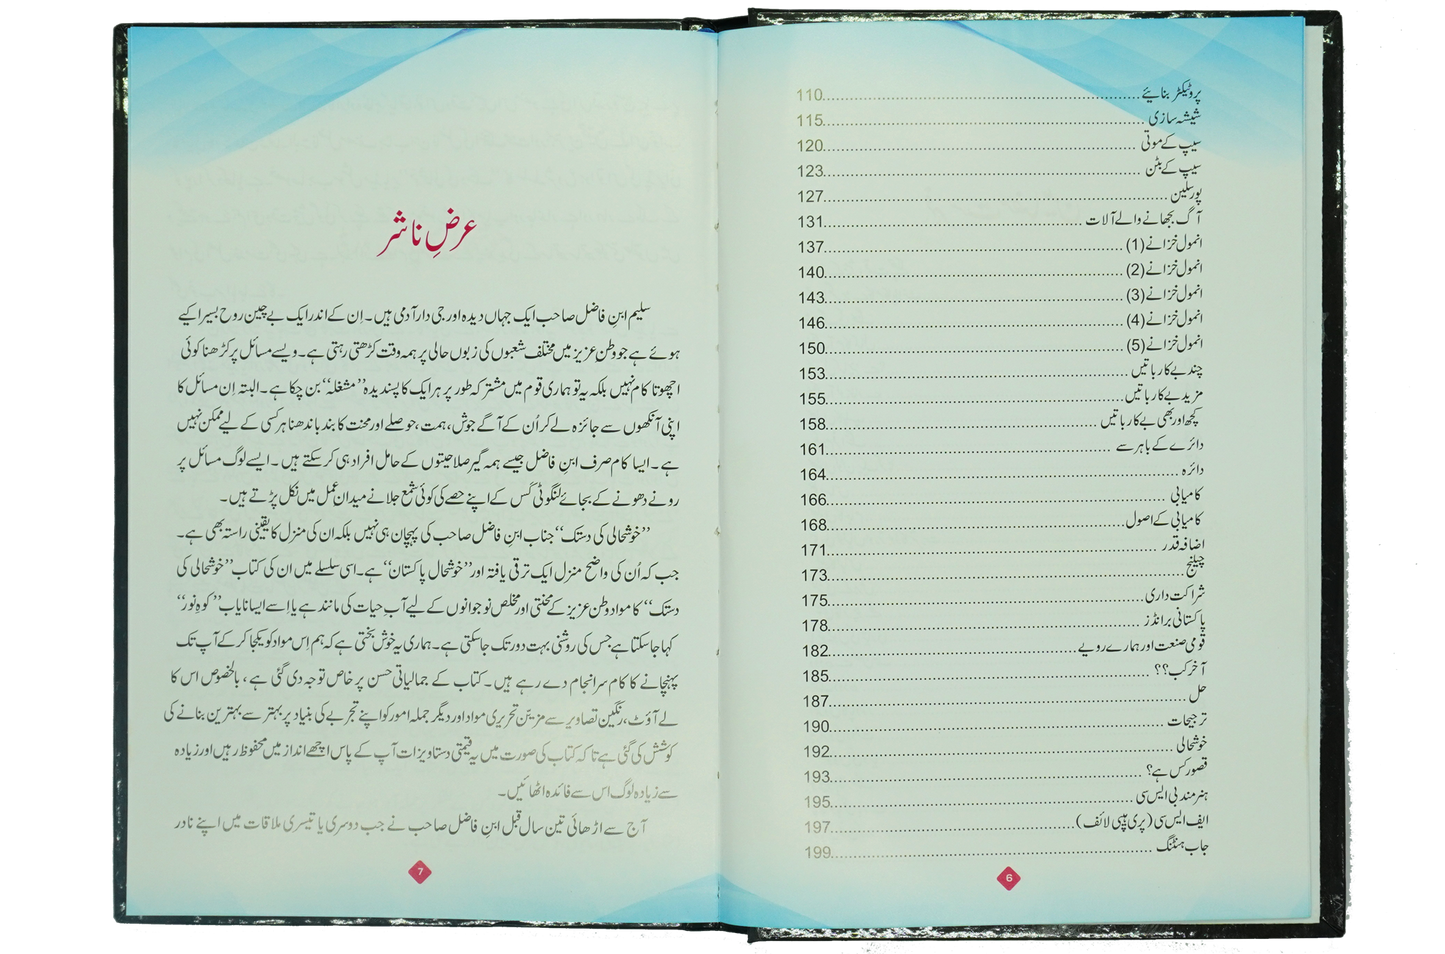 پروٹیکٹر بنائیے ........ 110
شیشہ سازی ........ 115
سیپ کے موتی ........ 120
سیپ کے بٹن ........ 123
پورسلین ........ 127
آگ بجھانے والے آلات ........ 131
انمول خزانے (1) ........ 137
انمول خزانے (2) ........ 140
انمول خزانے (3) ........ 143
انمول خزانے (4) ........ 146
انمول خزانے (5) ........ 150
چند بے کار باتیں ........ 153
مزید بے کار باتیں ........ 155
کچھ اور بھی بے کار باتیں ........ 158
دائرے کے باہر سے ........ 161
دائرہ ........ 164
کامیابی ........ 166
کامیابی کے اصول ........ 168
اضافہ قدر ........ 171
چیلنج ........ 173
شراکت داری ........ 175
پاکستانی برانڈز ........ 178
قومی صنعت اور ہمارے رویے ........ 182
آخر کب؟؟ ........ 185
حل ........ 187
ترجیحات ........ 190
خوشحالی ........ 192
قصور کس ہے؟ ........ 193
ہنر مند بی ایس سی ........ 195
ایف ایس سی (پری پپسی لائف) ........ 197
جاب ہنٹنگ ........ 199
6
عرضِ ناشر
سلیم ابنِ فاضل صاحب ایک جہاں دیدہ اور جی دار آدمی ہیں۔ اِن کے اندر ایک بے چین روح بسیرا کیے
ہوئے ہے جو وطن عزیز میں مختلف شعبوں کی زبوں حالی پر ہمہ وقت کڑھتی رہتی ہے۔ ویسے مسائل پر کڑھنا کوئی
اچھوتا کام نہیں بلکہ یہ تو ہماری قوم میں مشترکہ طور پر ہر ایک کا پسندیدہ ’’مشغلہ‘‘ بن چکا ہے۔ البتہ اِن مسائل کا
اپنی آنکھوں سے جائزہ لے کر اُن کے آگے جوش، ہمت، حوصلے اور محنت کا بند باندھنا ہر کسی کے لیے ممکن نہیں
ہے۔ ایسا کام صرف ابنِ فاضل جیسے ہمہ گیر صلاحیتوں کے حامل افراد ہی کر سکتے ہیں۔ ایسے لوگ مسائل پر
رونے دھونے کے بجائے لنگوٹی کَس کے اپنے حصے کی کوئی شمع جلانے میدانِ عمل میں نکل پڑتے ہیں۔
’’خوشحالی کی دستک‘‘ جناب ابنِ فاضل صاحب کی پہچان ہی نہیں بلکہ ان کی منزل کا یقینی راستہ بھی ہے۔
جب کہ اُن کی واضح منزل ایک ترقی یافتہ اور ’’خوشحال پاکستان‘‘ ہے۔ اسی سلسلے میں ان کی کتاب ’’خوشحالی کی
دستک‘‘ کا مواد وطن عزیز کے محنتی اور مخلص نوجوانوں کے لیے آبِ حیات کی مانند ہے یا اِسے ایسا نایاب ’’کوہِ نور‘‘
کہا جا سکتا ہے جس کی روشنی بہت دور تک جا سکتی ہے۔ ہماری یہ خوش بختی ہے کہ ہم اِس مواد کو یکجا کر کے آپ تک
پہنچانے کا کام سرانجام دے رہے ہیں۔ کتاب کے جمالیاتی حسن پر خاص توجہ دی گئی ہے، بالخصوص اس کا
لے آؤٹ، رنگین تصاویر سے مزیّن تحریری مواد اور دیگر جملہ امور کو اپنے تجربے کی بنیاد پر بہتر سے بہترین بنانے کی
کوشش کی گئی ہے تاکہ کتاب کی صورت میں یہ قیمتی دستاویزات آپ کے پاس اچھے انداز میں محفوظ رہیں اور زیادہ
سے زیادہ لوگ اس سے فائدہ اٹھائیں۔
آج سے اڑھائی تین سال قبل ابنِ فاضل صاحب نے جب دوسری یا تیسری ملاقات میں اپنے نادر
7